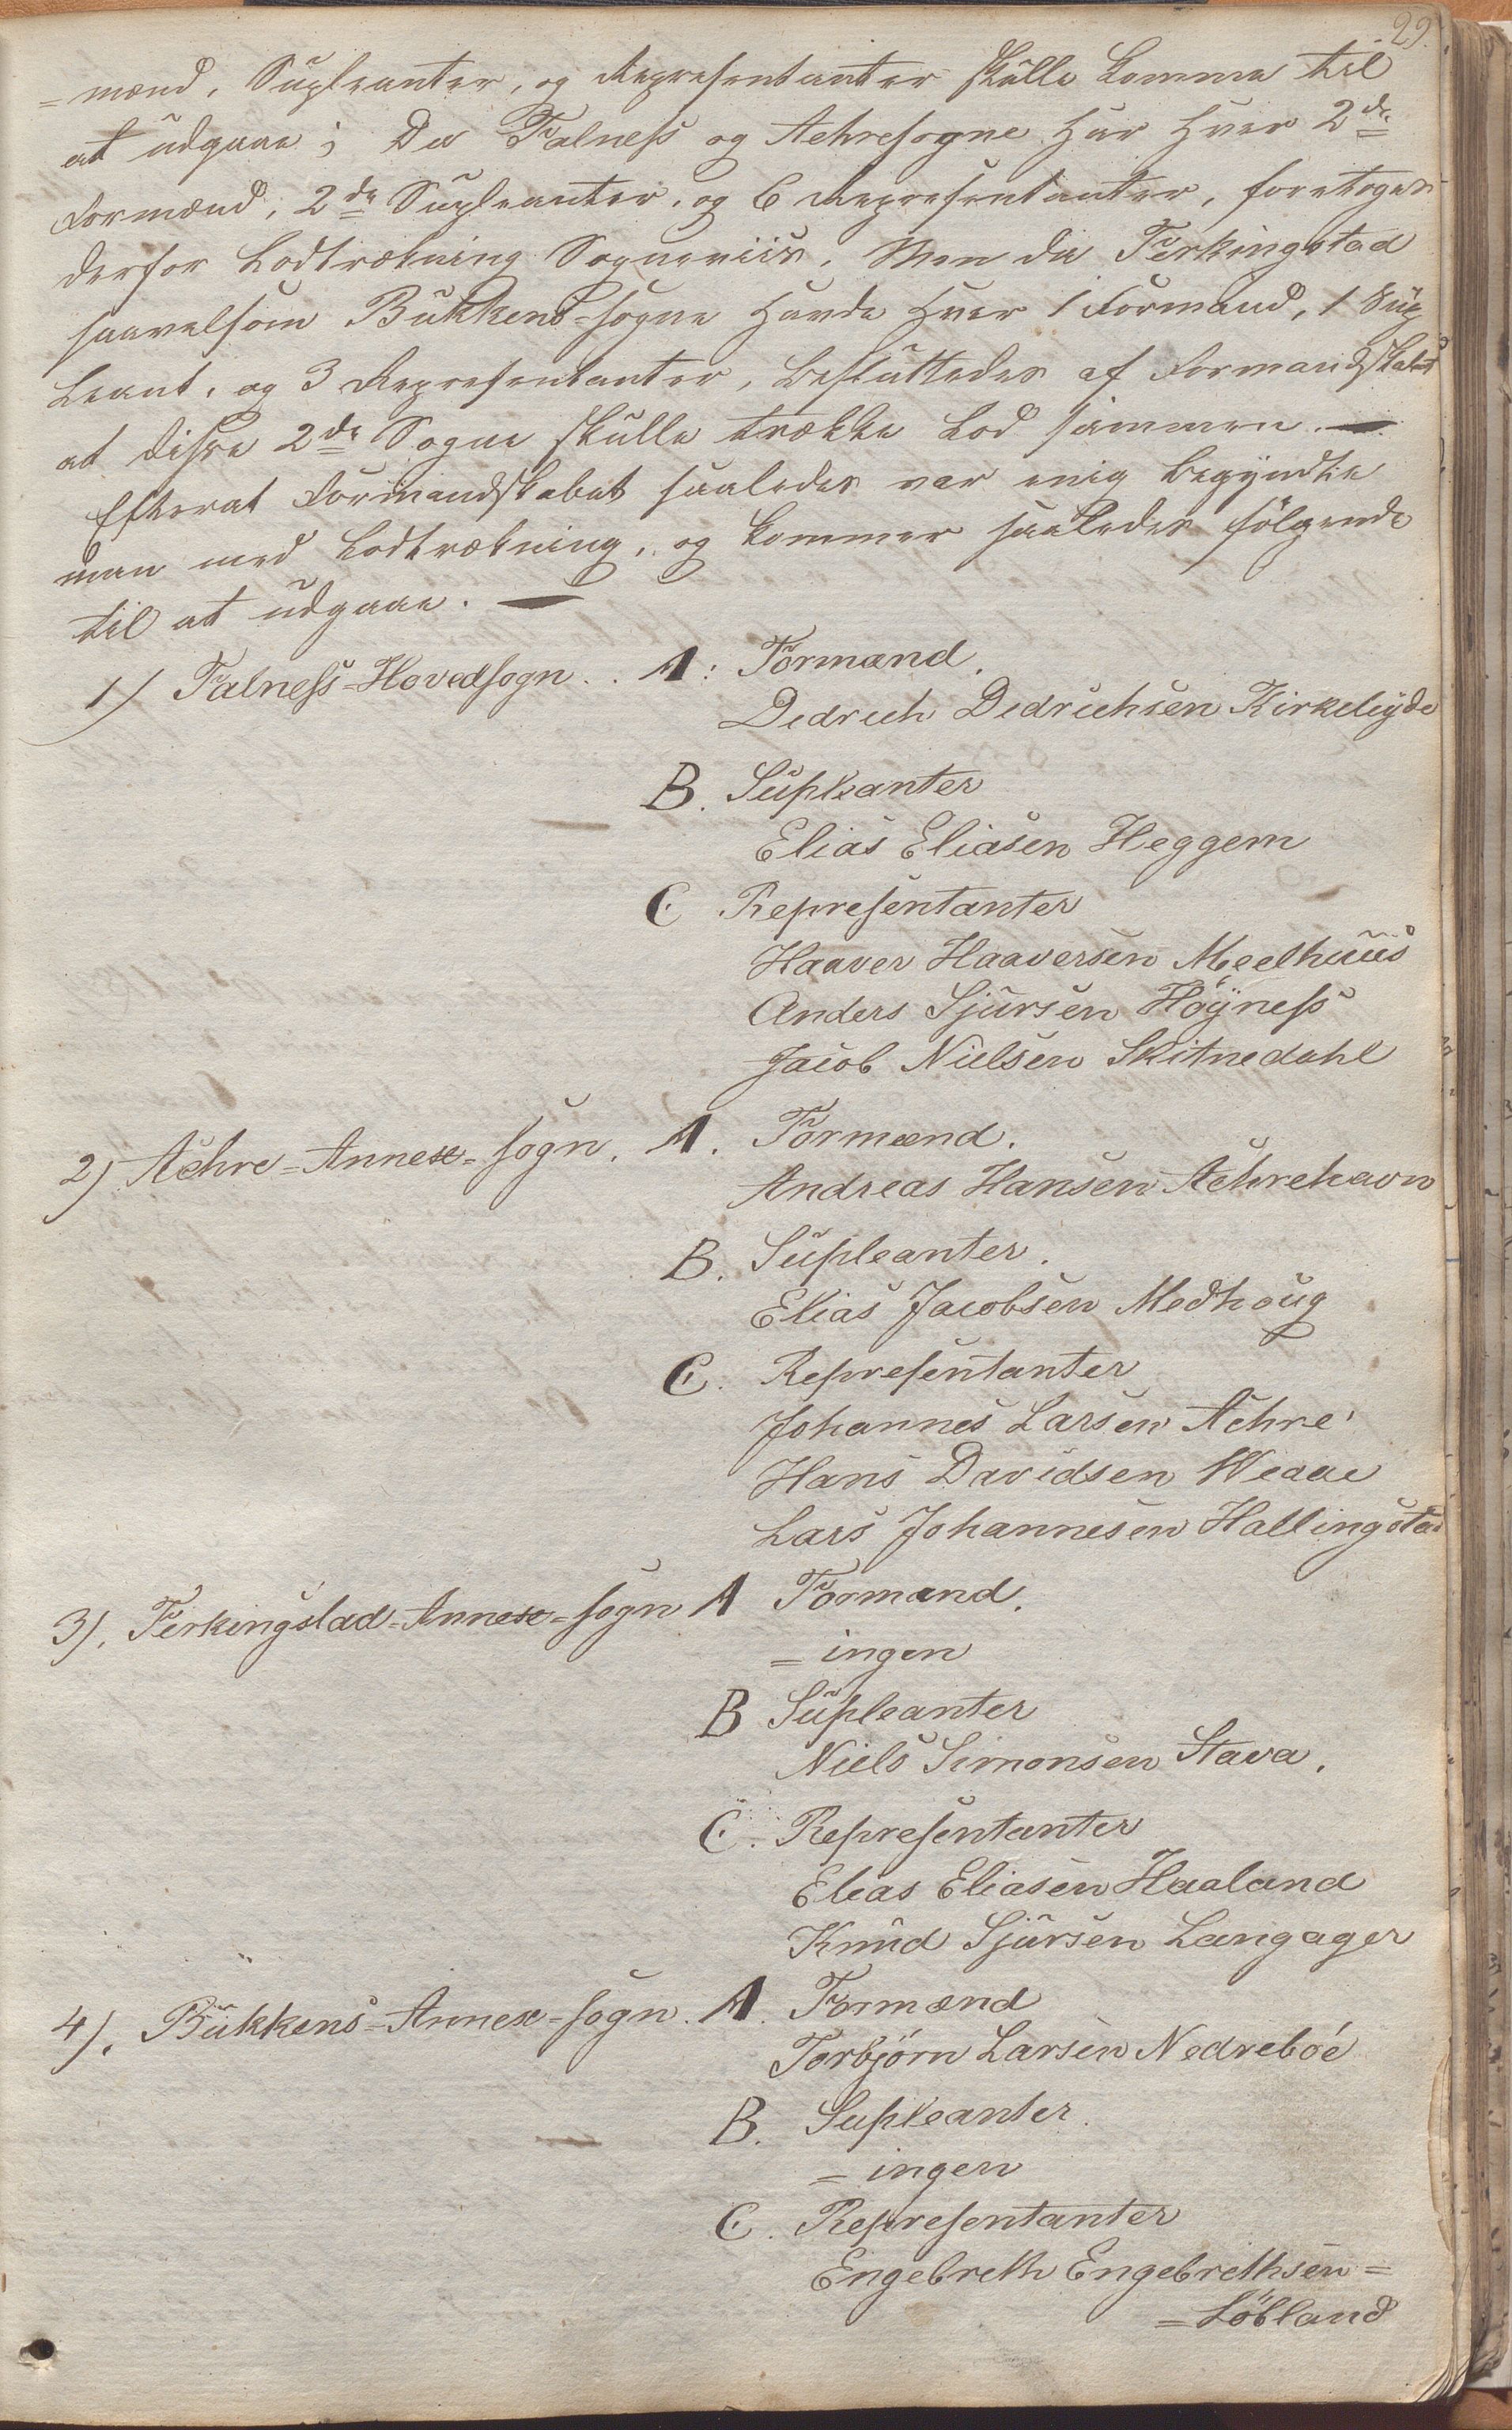 29.
=mænd, Supleanter, og Representanter skulle komme til
at udgaae; Da Falness og Aehresogne har hver 2de
Formænd, 2de Supleanter, og 6 Representanter, foretoges
derfor Lodtrækning Sogneviis. Men da Ferkingstad
saavelsom Bukkens-sogne havde hver 1 Formand, 1 Sup
leant, og 3 Representanter, besluttedes af Formandskabet
at disse 2de Sogne skulle trække Lod sammen. —
Efterat Formandskabet saaledes var enig begyndte
man med Lodtrækning, og kommer saaledes følgende
til at udgaae. —
1) Falness-Hovedsogn.. A: Formænd.
Dedrich Dedrichsen Kirkeleyde
B. Supleanter
Elias Eliasen Heggem
C. Representanter
Haaver Haaversen Meelhuus
Anders Sjursen Höÿness
Jacob Nielsen Skitnedahl
2) Aehre=Annex=sogn. A. Formænd.
Andreas Hansen Aehrehavn
B. Supleanter.
Elias Jacobsen Medhoug
C. Representanter
Johannes Larsen Aehre
Hans Davidsen Weaae
Lars Johannesen Hallingstad
3). Ferkingstad=Annex=sogn A Formænd.
= ingen
B Supleanter
Niels Simonsen Stava.
C. Representanter
Elias Eliasen Haaland
Knud Sjursen Langager
4). Bukkens=Annex=sogn. A. Formænd
Torbjørn Larsen Nedrebøe
B. Supleanter.
= ingen
C. Representanter
Engebreth Engebrethsen=
=Løbland